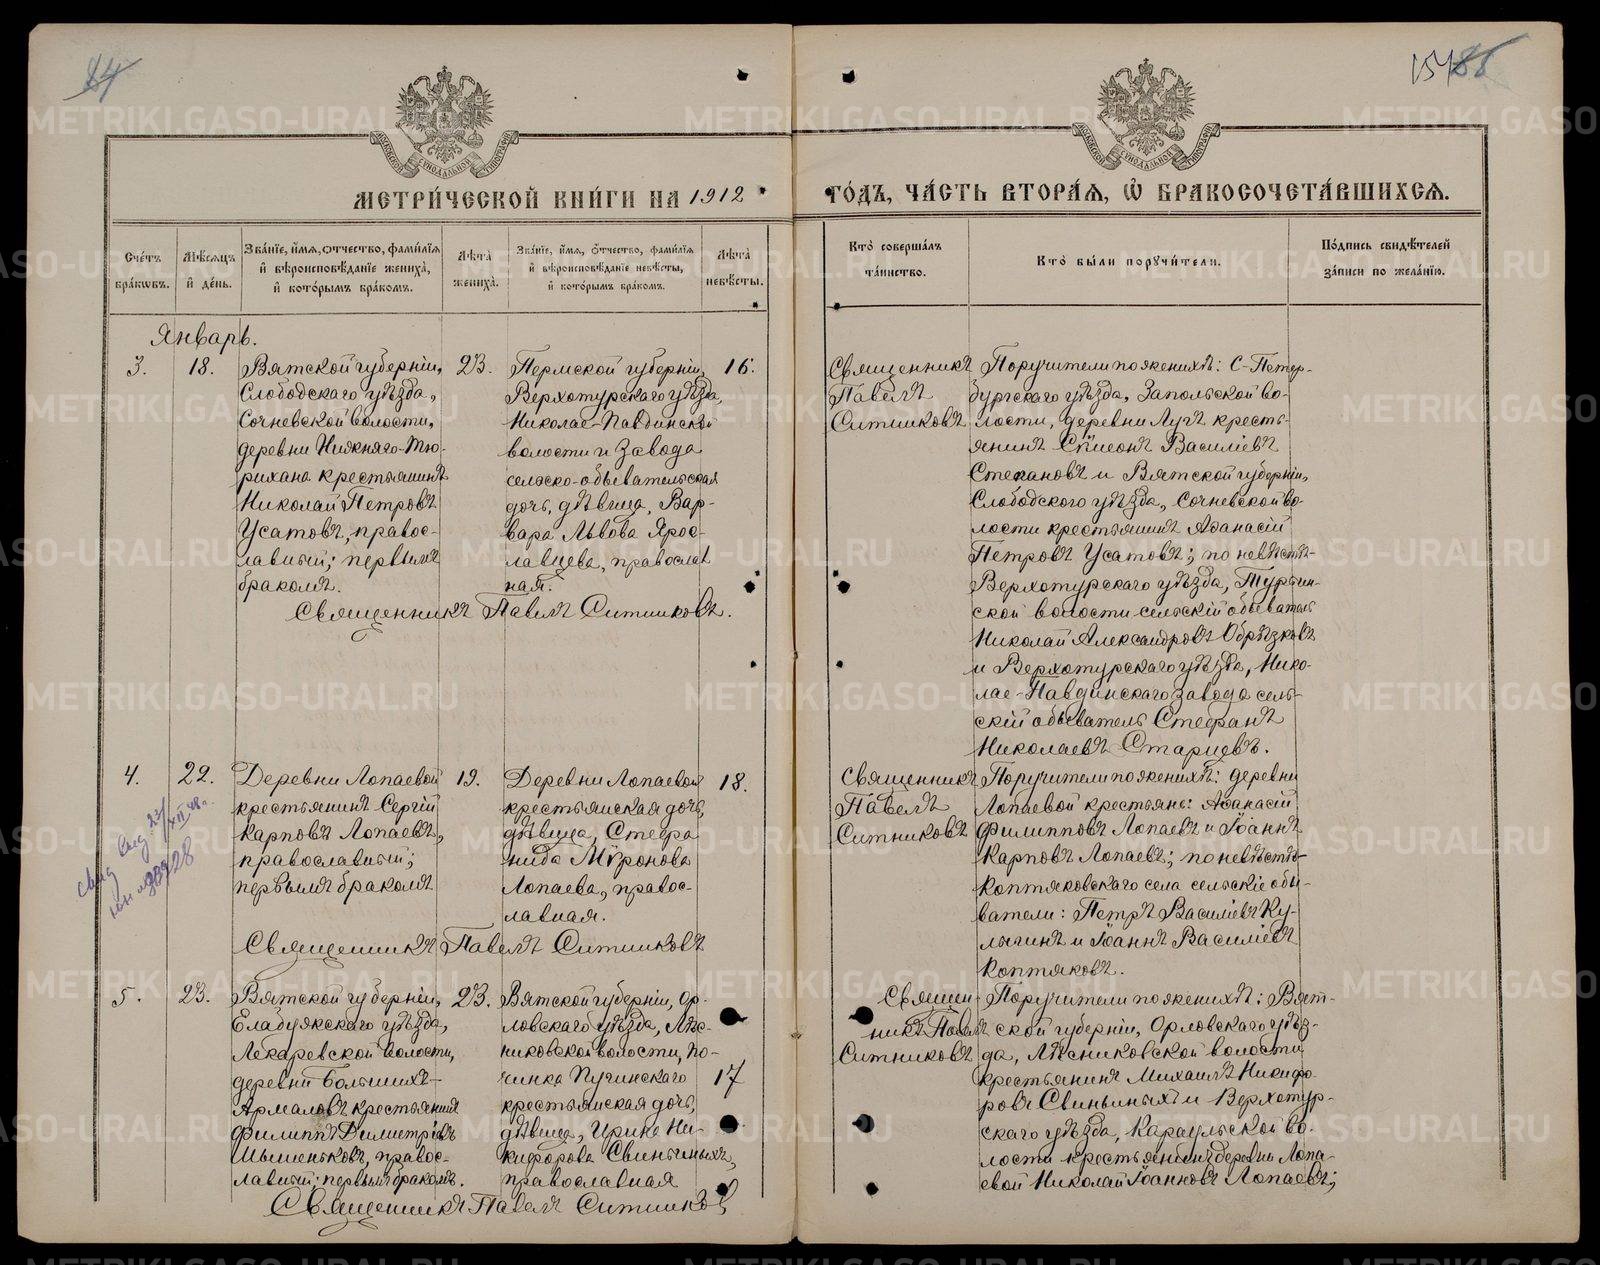 84
15485
МЕТРИ́ЧЕСКОЙ КНИ́ГИ НА 1912
ГО́ДЪ, ЧА́СТЬ ВТОРА́Я, Ѽ БРАКОСОЧЕТА́ВШИХСЯ.
Сче́тъ бра́кѡвъ.
Мѣ́сяцъ и҆ де́нь.
Зва́нїе, и҆́мя, ѻ҆́тчество, фами́лїя и҆ вѣроисповѣ́данїе жениха̀, и҆ кото́рымъ бра́комъ.
Лѣ́та жениха̀.
Зва́нїе, и҆́мя, ѻ҆́тчество, фами́лїя и҆ вѣроисповѣ́данїе невѣ́сты, и҆ кото́рымъ бра́комъ.
Лѣ́та невѣ́сты.
Кто̀ соверша́лъ та́инство.
Кто̀ бы́ли порꙋчи́тели.
По́дпись свидѣ́телей за́писи по жела́нїю.
Январь.
3.
18.
Вятской губернiи,
Слободскаго уѣзда,
Сочневской волости,
деревни Нижняго-Тю-
рихана крестьянинъ
Николай Петровъ
Усатовъ, правос-
лавный; первымъ
бракомъ.
23.
Пермской губернiи,
Верхотурскаго уѣзда,
Николае-Павдинской
волости и завода
сельско-обывательская
дочь, дѣвица, Вар-
вара Львова Ярос-
лавцева, православ
ная.
16.
Священникъ Павелъ Ситниковъ.
Священникъ
Павелъ
Ситниковъ
Поручители по женихѣ: С-Петер-
бургскаго уѣзда, Запольской во-
лости, деревни Лугъ кресть-
янинъ Сѵмеонъ Василiевъ
Степановъ и Вятской губернiи,
Слободскаго уѣзда, Сочневской во-
лости крестьянинъ Аѳанасiй
Петровъ Усатовъ; по невѣстѣ-
Верхотурскаго уѣзда, Турьин-
ской волости сельскiй обыватель
Николай Александровъ Обрѣзковъ
и Верхотурскаго уѣзда, Нико-
лае-Павдинскаго завода сель-
скiй обыватель Стефанъ
Николаевъ Старцевъ.
4.
22.
Деревни Лопаевой
крестьянинъ Сергiй
Карповъ Лопаевъ,
православный;
первымъ бракомъ
19.
Деревни Лопаевой
крестьянская дочь,
дѣвица, Стефа
нида Мѵронова
Лопаева, правос-
лавная.
18.
Священникъ Павелъ Ситниковъ
Священникъ
Павелъ
Ситниковъ
Поручители по женихѣ: деревни
Лопаевой крестьяне: Аѳанасiй
Филипповъ Лопаевъ и Iоаннъ
Карповъ Лопаевъ; по невѣстѣ-
Коптяковскаго села сельскiе обы-
ватели: Петръ Василiевъ Ку-
лыгинъ и Iоаннъ Василiевъ
Коптяковъ.
5.
23.
Вятской губернiи,
Елабужскаго уѣзда,
Лекаревской волости,
деревни Большихъ-
Армаловъ крестьянинъ
Филиппъ Димитрiевъ
Мышеньковъ, правос-
лавный; первымъ бракомъ.
23.
Вятской губернiи, Ор-
ловскаго уѣзда, Лѣс-
никовской волости, по-
чинка Пугинскаго
крестьянская дочь,
дѣвица, Ирина Ни-
кифорова Свиньиныхъ,
православная
17
Священникъ Павелъ Ситниковъ
Священ-
никъ Павелъ
Ситниковъ
Поручители по женихѣ: Вят-
ской губернiи, Орловскаго уѣз-
да, Лѣсниковской волости
крестьянинъ Михаилъ Никифо-
ровъ Свиньиныхъ и Верхотур-
скаго уѣзда, Караульской во-
лости крестьянинъ деревни Лопа-
евой Николай Iоанновъ Лопаевъ;